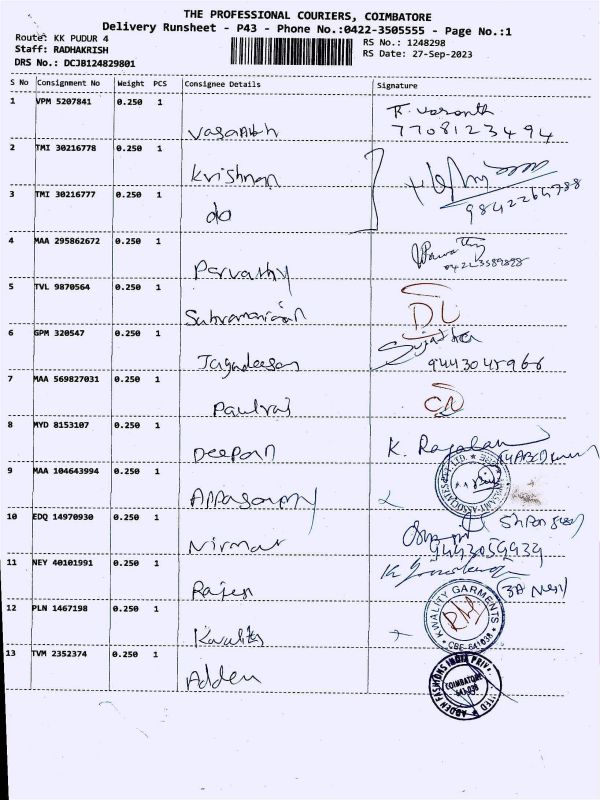 THE PROFESSIONAL COURIERS, COIMBATORE
Delivery Runsheet - P43 - Phone No.:0422-3505555 - Page No.:1
Route: KK PUDUR 4
RS No.: 1248298
Staff: RADHAKRISH
RS Date: 27-Sep-2023
DRS No.: DCJB124829801
S No Consignment No Weight PCS Consignee Details Signature
1 VPM 5207841 0.250 1 Vasanth R. Vasanth
7708123494
2 TMI 30216778 0.250 1 Krishnan
3 TMI 30216777 0.250 1 do 9842264788
4 MAA 295862672 0.250 1 Parvathy
5 TVL 9870564 0.250 1 DL
6 GPM 320547 0.250 1 Jagadeesan Sujatha
9443048966
7 MAA 569827031 0.250 1 Paulraj
8 MYD 8153107 0.250 1 Deepan
9 MAA 104643994 0.250 1 Appasamy
10 EDQ 14970930 0.250 1 Nirmal
9443059939
11 NEY 40101991 0.250 1 Rajen
12 PLN 1467198 0.250 1 Kwality KWALITY GARMENTS
13 TVM 2352374 0.250 1 Adden COIMBATORE